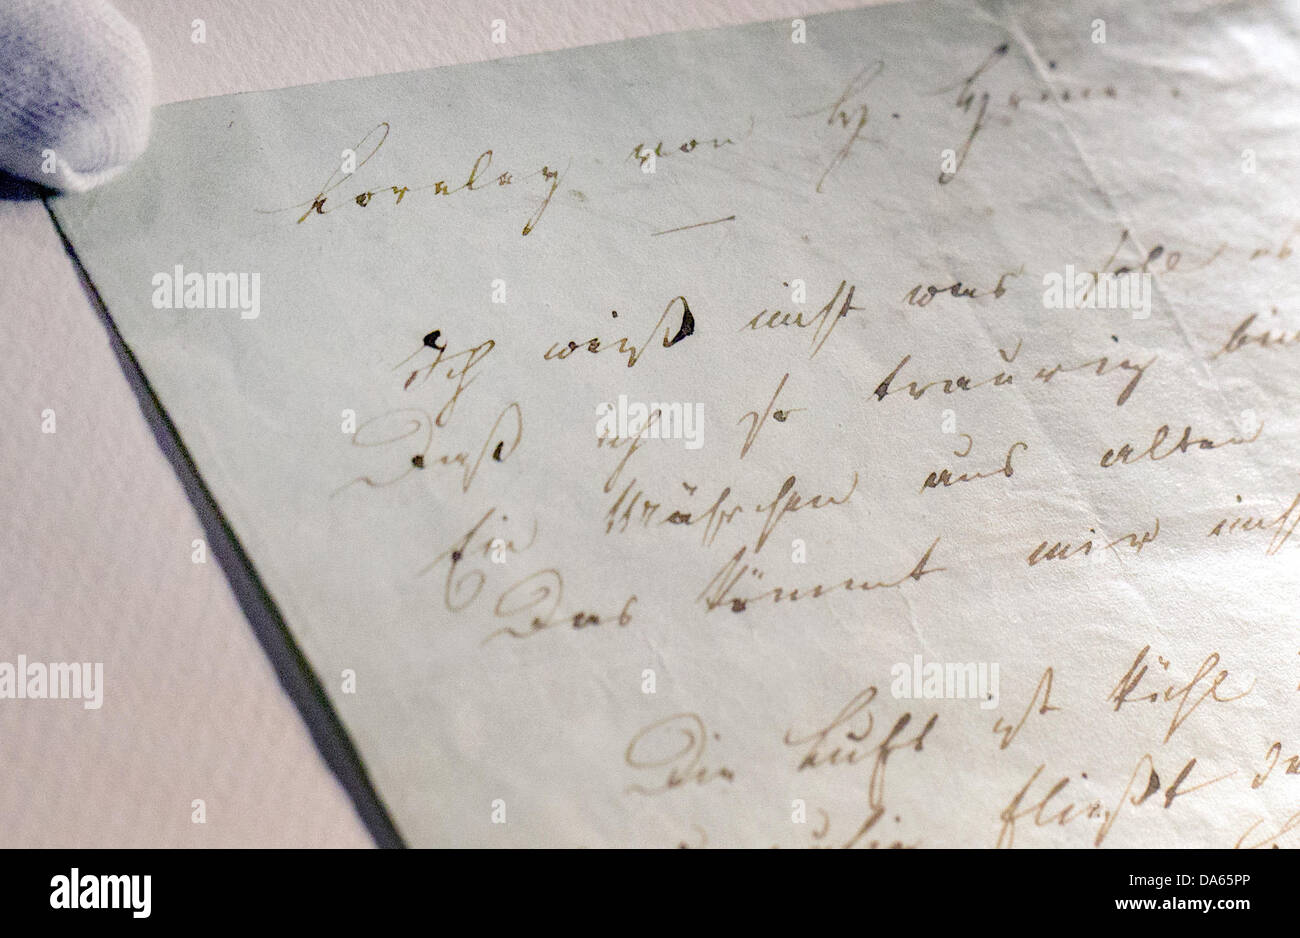 Loreley von H. Heine.
Ich weiß nicht was soll es
Daß ich so traurig bin
Ein Mährchen aus alten
Das kömmt mir nicht
Die Luft ist kühl
fließt de
alamy
Image ID: DA65PP
www.alamy.com